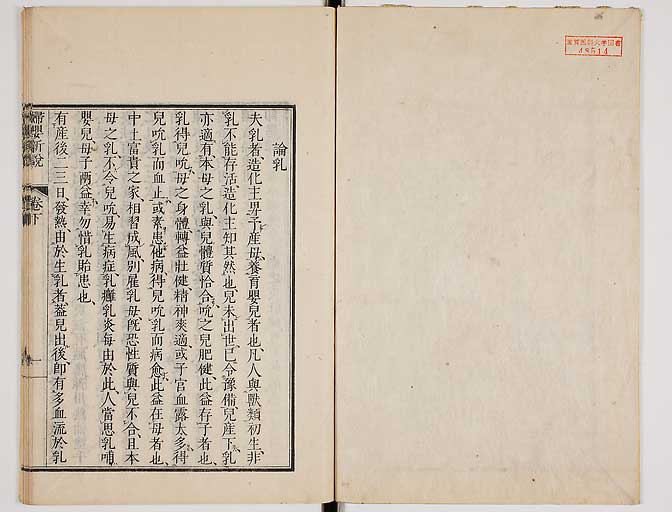 論乳
夫乳者、造化主畀予産母、養育嬰兒者也、凡人與獸類初生、非
乳不能存活、造化主知其然也、兒未出世、已令豫備、兒産下、乳
亦適有、本母之乳、與兒體質恰合、吮之兒肥健、此益存子者也、
乳得兒吮、母之身體轉益壯健、精神爽適、或子宮血露太多、得
兒吮乳而血止、或素患他病、得兒吮乳而病愈、此益在母者也、
中土富貴之家、相習成風、別雇乳母、旣恐性質與兒不合、且本
母之乳、不令兒吮、易生病症、乳癰乳炎、每由於此、人當思乳哺
嬰兒、母子兩益、幸勿惜乳貽患也、
有産後二三日發熱、由於生乳者、葢兒出後、卽有多血流於乳
婦嬰新說
卷下
48514